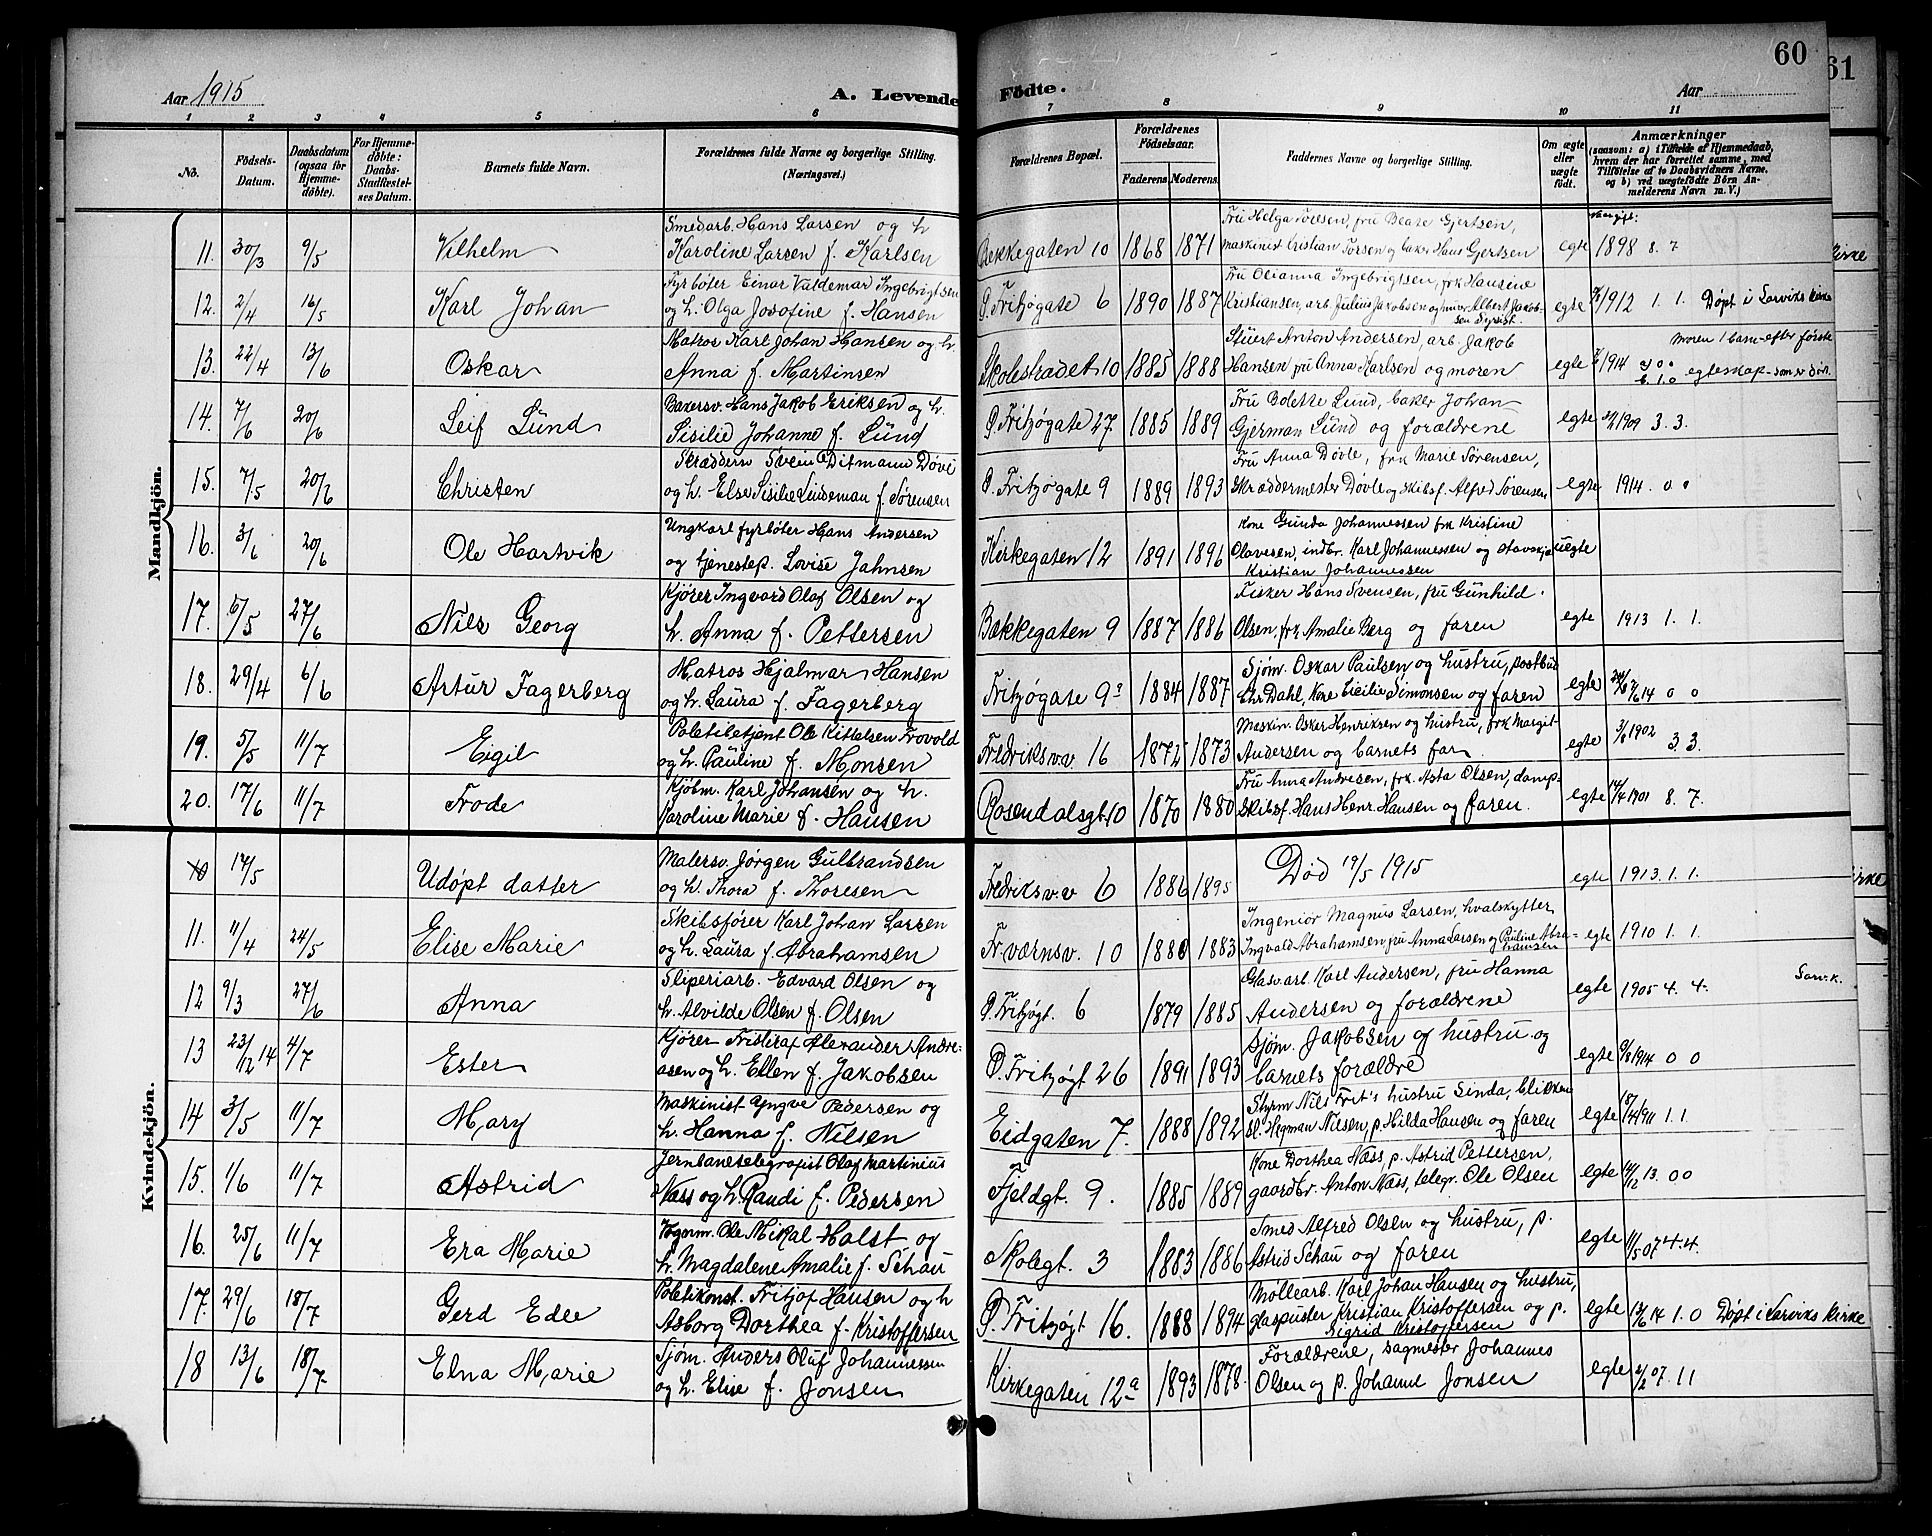 60
61
Aar 1915
A. Levende Födte.
Aar
1 2 3 4 5 6 7 8 9 10 11
No.
Födsels-Datum.
Daabsdatum (ogsaa for Hjemmedöbte).
For Hjemmedöbte: Daabs-Stadfæstelses Datum.
Barnets fulde Navn.
Forældrenes fulde Navne og borgerlige Stilling.
(Næringsvei.)
Forældrenes Bopæl.
Forældrenes Födselsaar.
Faderens. Moderens.
Faddernes Navne og borgerlige Stilling.
Om ægte eller uægte födt.
Anmærkninger
(saasom: a) i Tilfælde af Hjemmedaab, hvem der har forrettet samme, med Tilföielse af to Daabsvidners Navne, og b) ved uægtefödte Börn Anmelderens Navn m. V.)
Mandkjön.
11. 30/3 9/5 Vilhelm
Smedarb. Hans Larsen og h.
Karoline Larsen f. Karlsen
Bekkegaten 10 1868 1871
Fru Helga Toresen, fru Beate Gjertsen,
maskinist Kristian Torsen og baker Hans Gjertsen
egte 1898 8. 7
12. 2/4 16/5 Karl Johan
Fyrböter Einar Valdemar Ingebrigtsen
og h. Olga Josofine f. Hansen
Ö. Fritzøgate 6 1890 1887
Fru Olianna Ingebrigtsen, frk Hansine
Kristiansen, arb. Julius Jakobsen og murer Albert Jakobsen
egte 1912 1. 1. Døpt i Larviks kirke
13. 22/4 13/6 Oskar
Matros Karl Johan Hansen og h.
Anna f. Martinsen
Skolestradet 10 1885 1888
Stuert Anton Andersen, arb. Jakob
Hansen fru Anna Karlsen og moren
egte 1914 moren 1 barn efter første
egteskap som er död.
14. 7/6 20/6 Leif Lund
Bakersv. Hans Jakob Eriksen og h.
Sisilie Johanne f. Lund
Ö. Fritzøgate 27 1885 1889
Fru Bolette Lund, baker Johan
Gjerman Lund og forældrene
egte 1909 3. 3.
15. 7/5 20/6 Christen
Skræddersv Svein Ditmann Döve
og h. Else Sisilie Lindeman f. Sørensen
Ö. Fritzøgate 9 1889 1893
Fru Anna Døvle, frk Marie Sørensen,
skræddermester Døvle og skibsf. Alfred Sørensen
egte 1914. 0 0
16. 3/6 20/6 Ole Hartvik
Ungkarl fyrböter Hans Andersen
og tjenestep. Lovise Jahnsen
Kirkegaten 12 1891 1896
Kone Gunda Johannessen frk Kristine
Olavesen, indbr. Karl Johannessen og
Kristian Johannessen
uegte
17. 6/5 27/6 Nils Georg
Kjører Ingvard Olaf Olsen og
h. Anna f. Pettersen
Bækkegaten 9 1887 1886
Fisker Hans Svensen, fru Gunhild
Olsen, frk Amalie Berg og faren
egte 1913 1. 1.
18. 29/4 6/6 Artur Fagerberg
Matros Hjalmar Hansen
og h. Laura f. Fagerberg
Fritzøgate 9 1884 1887
Sjøm. Oskar Paulsen og hustru, postbud
Chr Dahl, Kone Cicilie Simonsen og faren
egte 14 0 0
19. 5/5 11/7 Eigil
Politibetjent Ole Kittelsen Frovold
og h. Pauline f. Monsen
Fredriksv.v. 16 1872 1873
Maskin. Osker Henriksen og hustru, frk Margit
Andersen og barnets far
egte 3/6 1902 3. 3.
20. 17/6 11/7 Frode
Kjöbm. Karl Johansen og h.
Karoline Marie f. Hansen
Rosendalsgt. 10 1870 1880
Fru Anna Andresen, frk. Asta Olsen, dampskibsf.
Hans Henr. Hansen og faren.
egte 14/4 1901 8. 7.
Kvindekjön.
10 17/5 Udøpt datter
Malersv. Jörgen Gulbrandsen
og h. Thora f. Thoresen
Fredriksv.v 6 1886 1895
Död 19/5 1915
egte 1913. 1. 1.
11. 11/4 24/5 Elise Marie
Skibsfører Karl Johan Larsen
og h. Laura f. Abrahamsen
Fr. værnsv. 10 1880 1883
Ingeniör Magnus Larsen, hvalskytter
Ingvald Abrahamsen, fru Anna Larsen og Pauline Abrahamsen
egte 1910 1. 1.
12 9/3 27/6 Anna
Sliperiarb. Edvard Olsen og
h. Alvilde Olsen f. Olsen
Ö. Fritzøgt. 6 1879 1885
Glasvarb. Karl Andersen, fru Hanna
Andersen og forældrene
egte 1905 4. 4. Larv.k.
13 23/12 14 4/7 Ester
Kjører Alexander Andreasen
og h. Ellen f. Jakobsen
Ö. Fritzøgt 26 1891 1893
Sjøm. Jakobsen og hustru og
barnets forældre
egte 9/8 1914 0 0
14 3/5 11/7 Mary
Maskinist Yngve Pedersen og
h. Hanna f. Nilsen
Eidgaten 7. 1888 1892
Styrm Nils Frit's hustru Linda,
Hegman Nilsen, p. Hilda Hansen og faren
egte 1911 1. 1
15. 1/6 11/7 Astrid
Jernbanetelegrafist Olaf Martinius
Næss og h. Randi f. Pedersen
Fjeldgt. 9. 1885 1889
Kone Dorthea Næss, p. Astrid Pettersen,
gaardbr. Anton Næss, telegr. Ole Olsen
egte 12 13. 0 0
16. 25/6 11/7 Era Marie
Vognm. Ole Mikal Holst og
h. Magdalene Amalie f. Schau
Skolegt. 3 1883 1886
Smed Alfred Olsen og hustru, p.
Astrid Schau og faren
egte 11/5 07 4. 4.
17. 29/6 18/7 Gerd Edle
Politikonst. Fritjof Hansen og h
Asborg Dorthea f. Kristoffersen
Ö. Fritzøgt 16. 1888 1894
Møllearb. Karl Johan Hansen og hustru,
glaspuster Kristian Kristoffersen og p.
Sigrid Kristoffersen
egte 13/6 14 1. 0 Døpt i Larviks Kirke
18 13/6 18/7 Elna Marie
Sjøm. Anders Oluf Johannessen
og h. Elise f. Jonsen
Kirkegaten 12a 1893 1878.
Forældrene, sagmester Johannes
Olsen og p. Johanne Jonsen
egte 07. 1 1